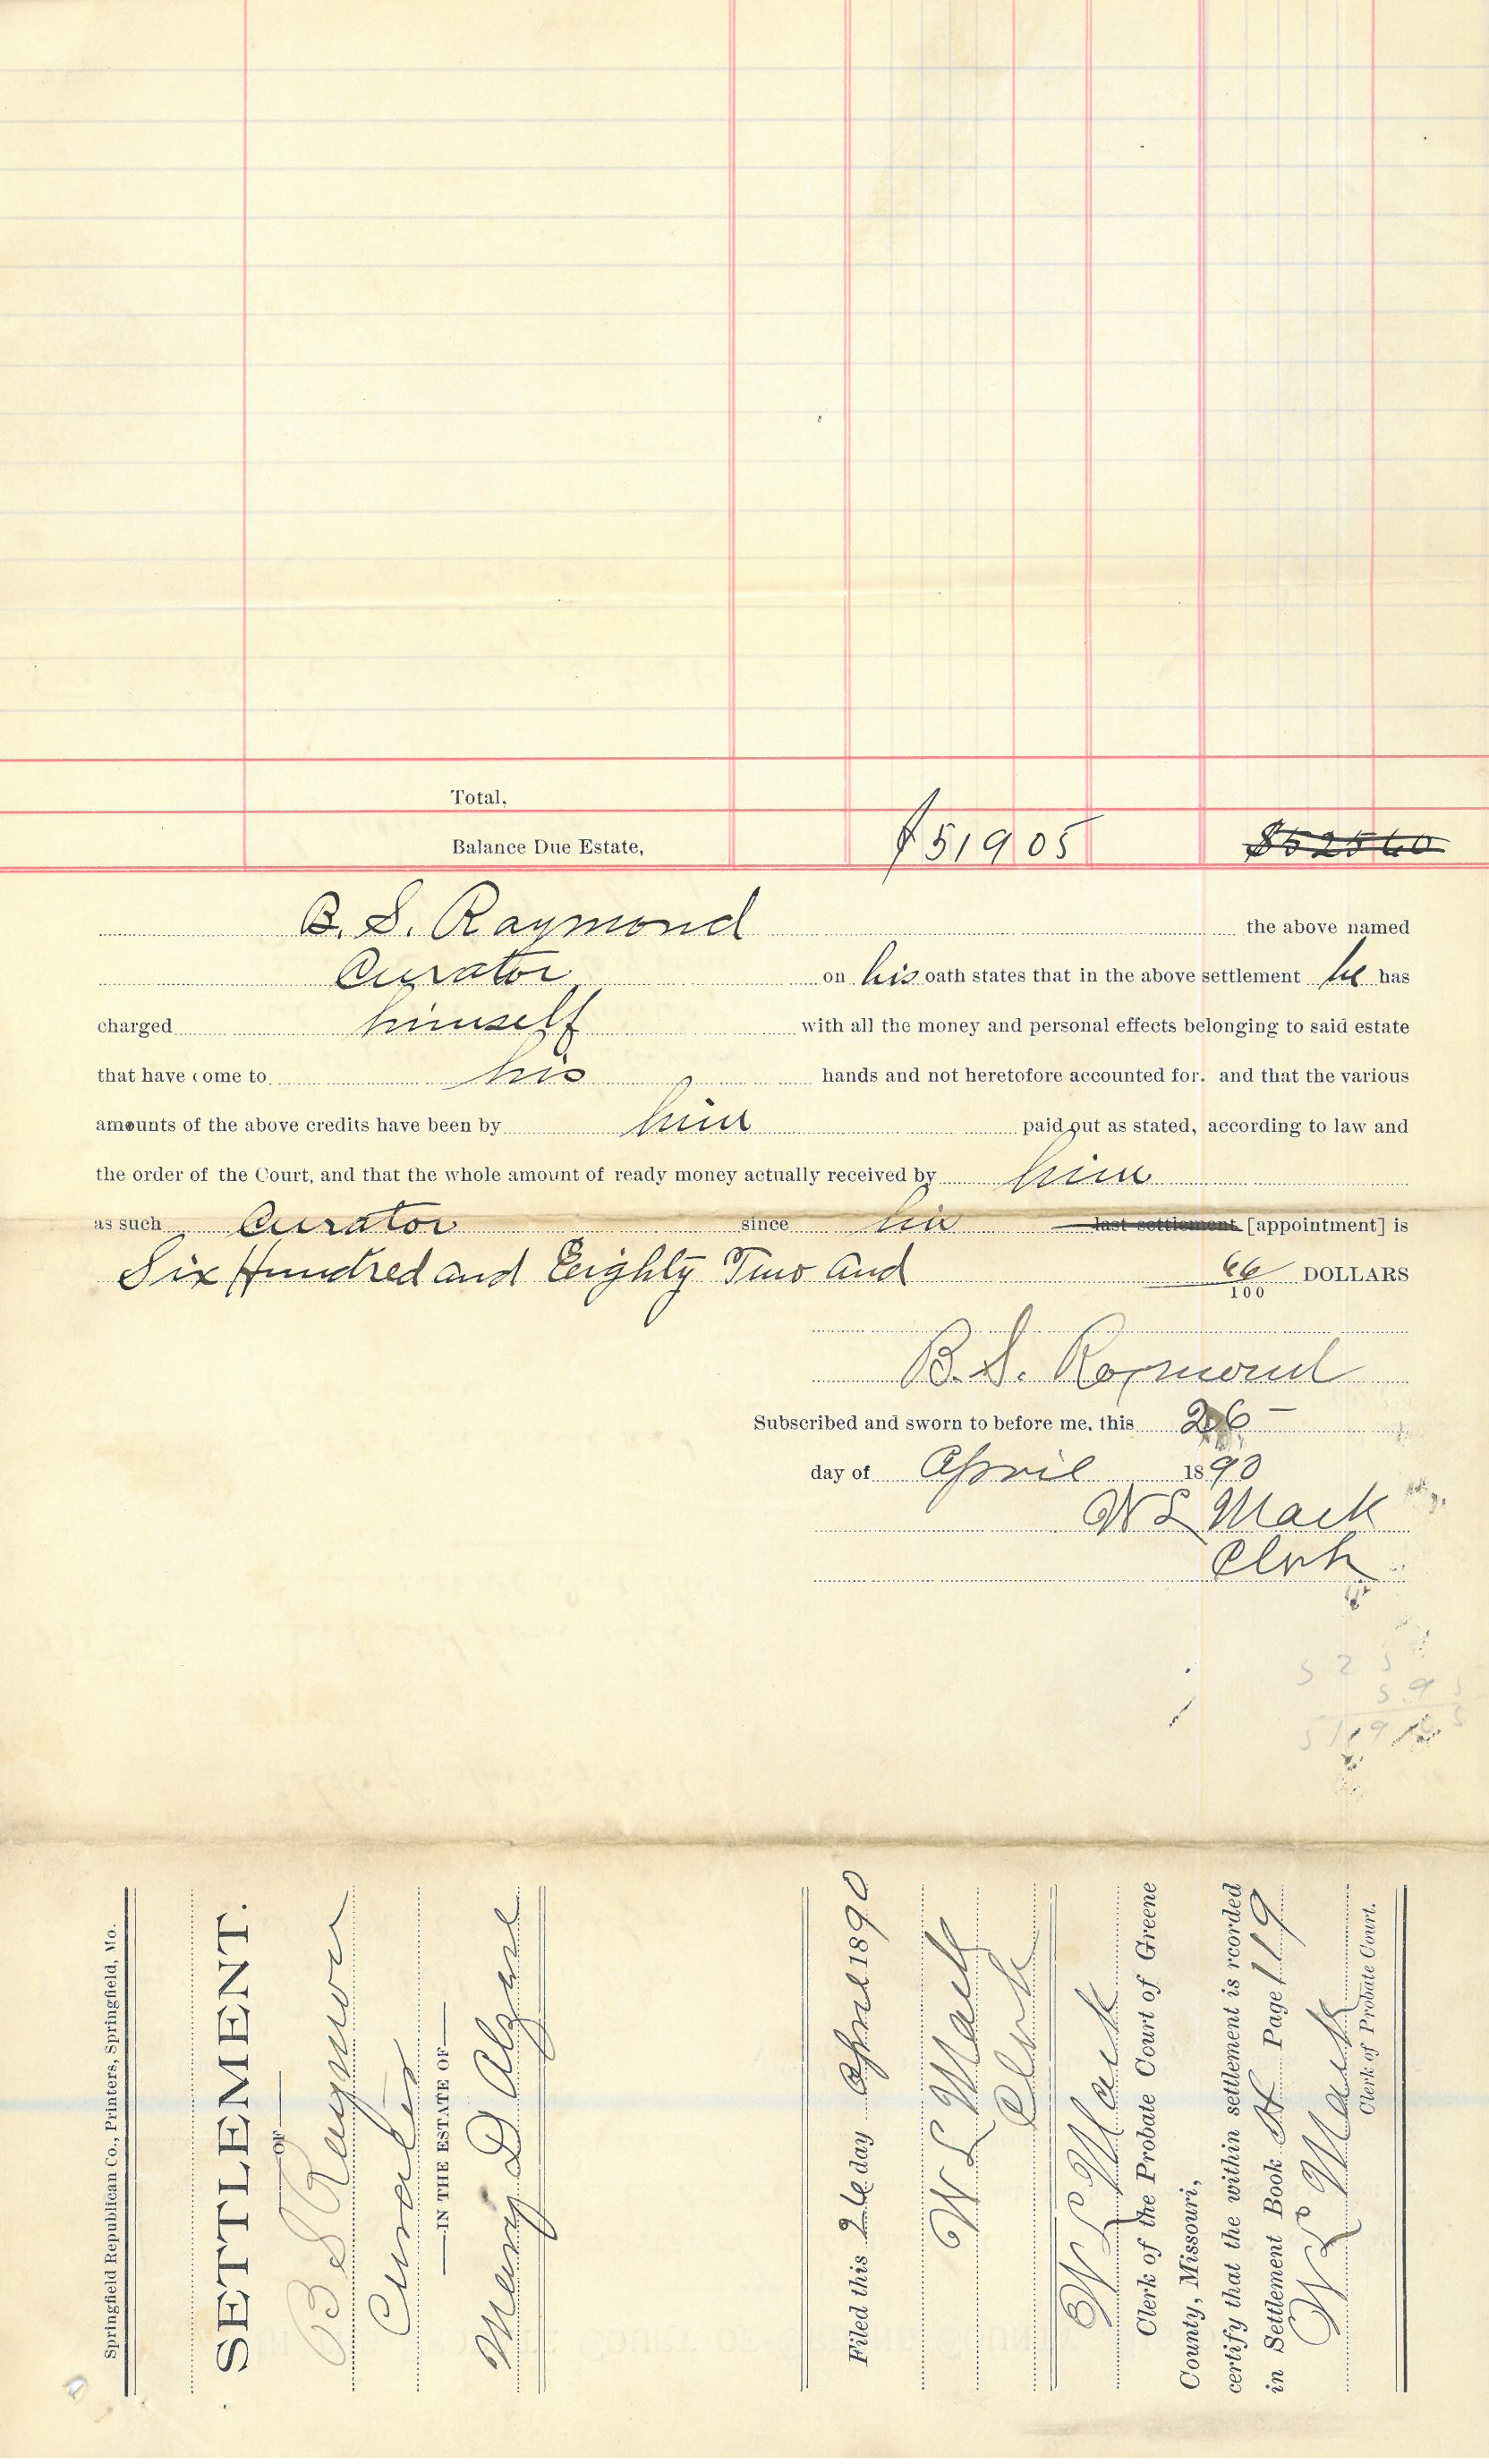 Total,
Balance Due Estate, $519 05 $525 60
B. S. Raymond the above named
Curator on his oath states that in the above settlement he has
charged himself with all the money and personal effects belonging to said estate
that have come to his hands and not heretofore accounted for. and that the various
amounts of the above credits have been by him paid out as stated, according to law and
the order of the Court, and that the whole amount of ready money actually received by him
as such Curator since his last settlement [appointment] is
Six Hundred and Eeighty Two and 66/100 DOLLARS
B. S. Raymond
Subscribed and sworn to before me, this 26
day of April 1890
W L Mack
Clerk
Springfield Republican Co., Printers, Springfield, Mo.
SETTLEMENT.
OF
B S Raymon
Curator
IN THE ESTATE OF
Mary D
Filed this 26 day April 1890
W L Mack
Clerk
W L Mack
Clerk of the Probate Court of Greene
County, Missouri,
certify that the within settlement is rcorded
in Settlement Book H Page 119
W L Mack
Clerk of Probate Court.